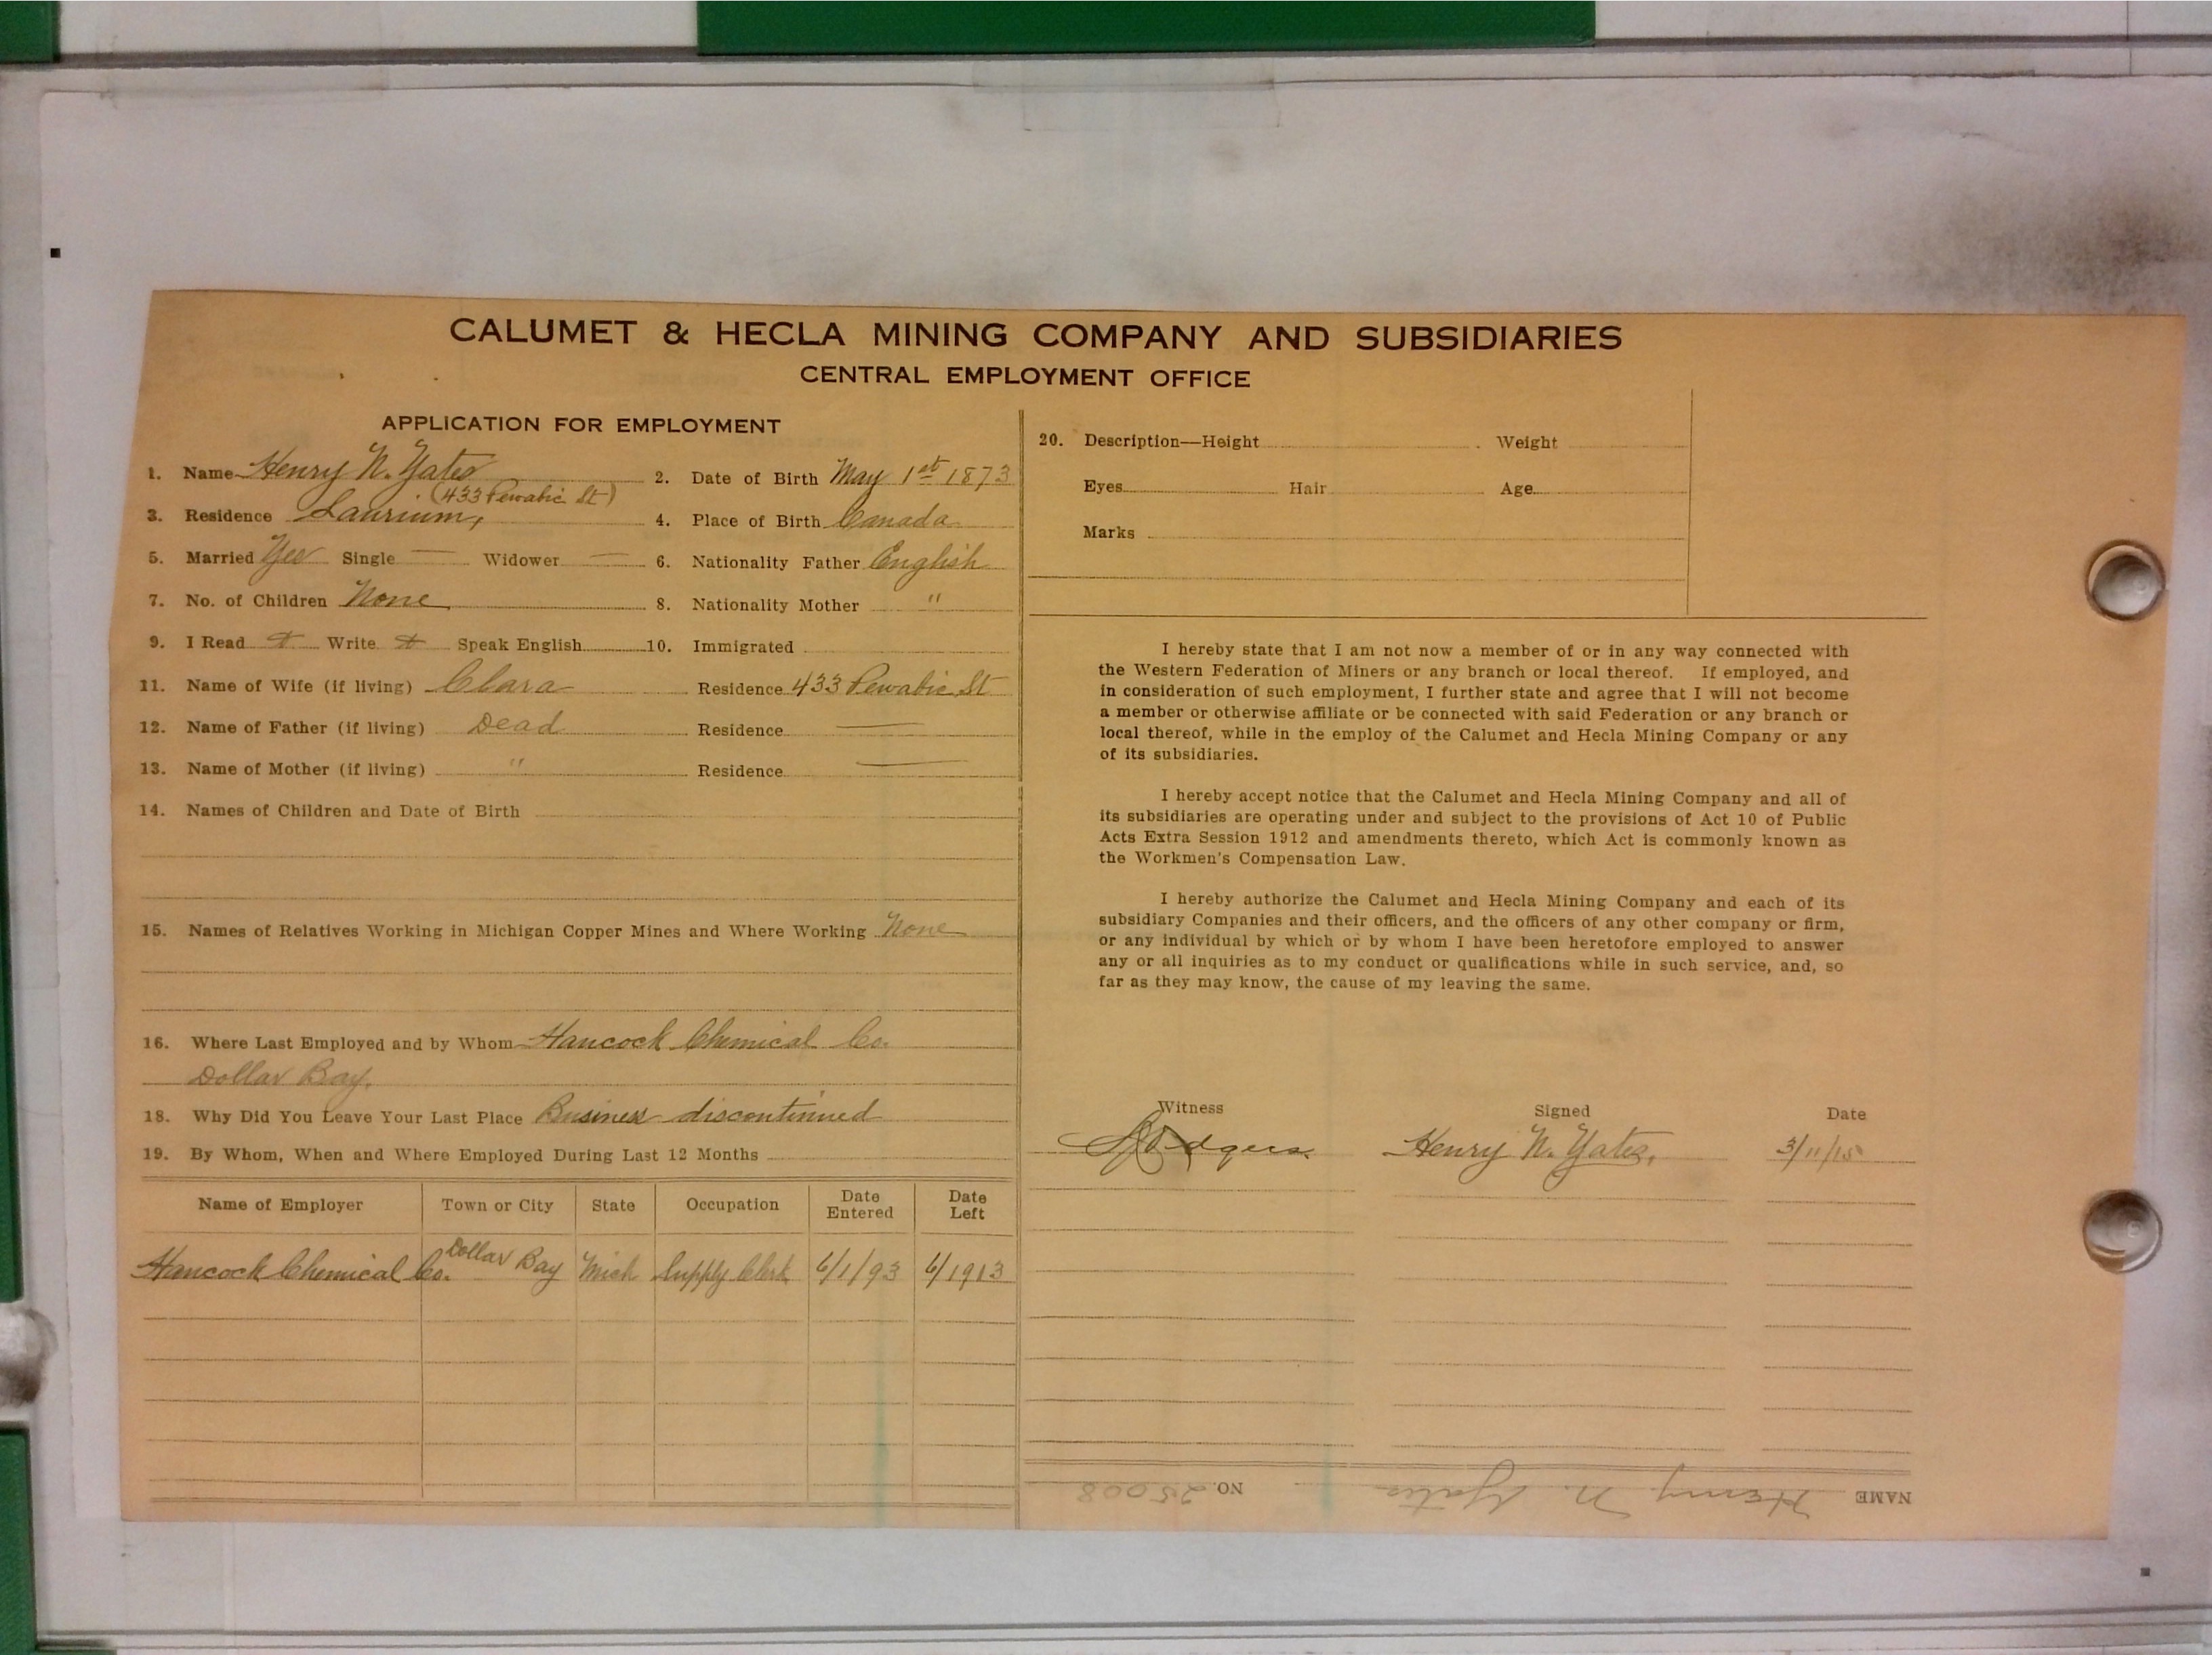 CALUMET & HECLA MINING COMPANY AND SUBSIDIARIES
CENTRAL EMPLOYMENT OFFICE
APPLICATION FOR EMPLOYMENT
1. Name Henry N. Yates 2. Date of Birth May 1st 1873
(433 Pewabic St)
3. Residence Laurium, 4. Place of Birth Canada
5. Married Yes Single — Widower — 6. Nationality Father English
7. No. of Children None 8. Nationality Mother "
9. I Read + Write + Speak English 10. Immigrated
11. Name of Wife (if living) Clara Residence 433 Pewabic St
12. Name of Father (if living) Dead Residence —
13. Name of Mother (if living) " Residence —
14. Names of Children and Date of Birth
15. Names of Relatives Working in Michigan Copper Mines and Where Working None
16. Where Last Employed and by Whom Hancock Chemical Co.
Dollar Bay.
18. Why Did You Leave Your Last Place Business discontinued
19. By Whom, When and Where Employed During Last 12 Months
Name of Employer Town or City State Occupation Date Entered Date Left
Hancock Chemical Co. Dollar Bay Mich Supply Clerk 6/1/93 6/1913
20. Description—Height Weight
Eyes Hair Age
Marks
I hereby state that I am not now a member of or in any way connected with
the Western Federation of Miners or any branch or local thereof. If employed, and
in consideration of such employment, I further state and agree that I will not become
a member or otherwise affiliate or be connected with said Federation or any branch or
local thereof, while in the employ of the Calumet and Hecla Mining Company or any
of its subsidiaries.
I hereby accept notice that the Calumet and Hecla Mining Company and all of
its subsidiaries are operating under and subject to the provisions of Act 10 of Public
Acts Extra Session 1912 and amendments thereto, which Act is commonly known as
the Workmen's Compensation Law.
I hereby authorize the Calumet and Hecla Mining Company and each of its
subsidiary Companies and their officers, and the officers of any other company or firm,
or any individual by which or by whom I have been heretofore employed to answer
any or all inquiries as to my conduct or qualifications while in such service, and, so
far as they may know, the cause of my leaving the same.
Witness Signed Date
Henry N. Yates, 3/11/15
NAME Henry N. Yates NO. 25008